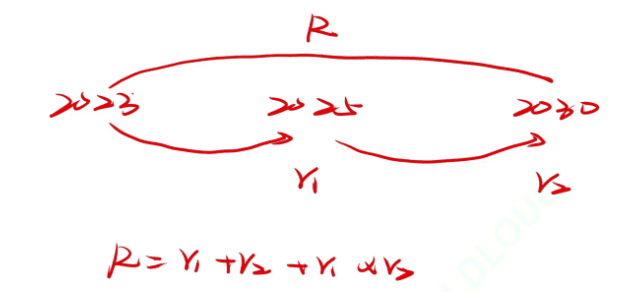 R
2023 2025 2030
r₁ r₂
R = r₁ + r₂ + r₁ × r₂